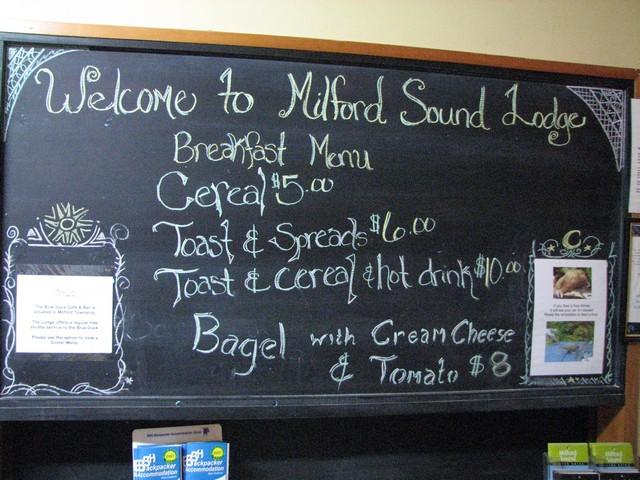 Welcome to Milford Sound Lodge
Breakfast Menu
Cereal $5.00
Toast & Spreads $6.00
Toast & Cereal & hot drink $10.00
Bagel with Cream Cheese
& Tomato $8
The Blue Duck Cafe & Bar is
situated in Milford Township.
The Lodge offers a regular free
shuttle service to the Blue Duck
Please see Reception to view a
Dinner Menu
BBH
Backpacker
Accommodation
BBH
Backpacker
Accommodation
Milford
Sound
Milford
Sound